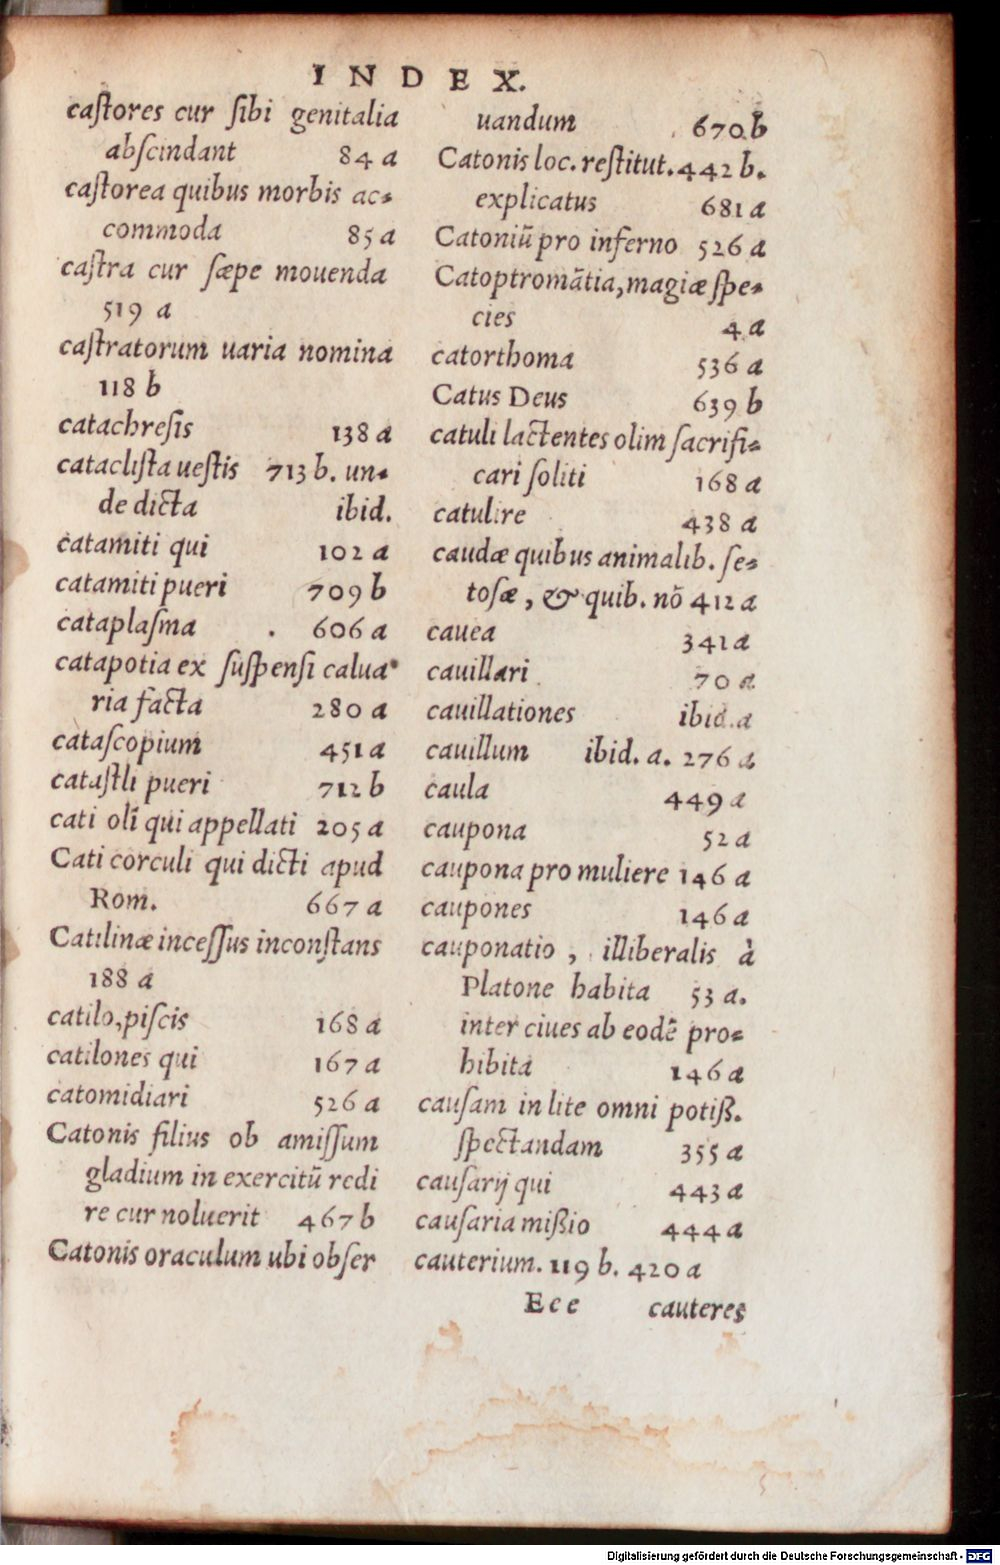 INDEX.
castores cur sibi genitalia
abscindant 84 a
castorea quibus morbis ac-
commoda 85 a
castra cur sæpe mouenda
519 a
castratorum uaria nomina
118 b
catachresis 138 a
cataclista uestis 713 b. un-
de dicta ibid.
catamiti qui 102 a
catamiti pueri 709 b
cataplasma 606 a
catapotia ex suspensi calua-
ria facta 280 a
catascopium 451 a
catastli pueri 712 b
cati olī qui appellati 205 a
Cati corculi qui dicti apud
Rom. 667 a
Catilinæ incessus inconstans
188 a
catilo, piscis 168 a
catilones qui 167 a
catomidiari 526 a
Catonis filius ob amissum
gladium in exercitū redi
re cur noluerit 467 b
Catonis oraculum ubi obser
uandum 670 b
Catonis loc. restitut. 442 b.
explicatus 681 a
Catoniū pro inferno 526 a
Catoptromātia, magiæ spe-
cies 4 a
catorthoma 536 a
Catus Deus 639 b
catuli lactentes olim sacrifi-
cari soliti 168 a
catulire 438 a
caudæ quibus animalib. se-
tosæ, & quib. nō 412 a
cauea 341 a
cauillari 70 a
cauillationes ibid. a
cauillum ibid. a. 276 a
caula 449 a
caupona 52 a
caupona pro muliere 146 a
caupones 146 a
cauponatio, illiberalis à
Platone habita 53 a.
inter ciues ab eodē pro-
hibita 146 a
causam in lite omni potiß.
spectandam 355 a
causarij qui 443 a
causaria mißio 444 a
cauterium. 119 b. 420 a
Ece cauteres
Digitalisierung gefördert durch die Deutsche Forschungsgemeinschaft - DFG